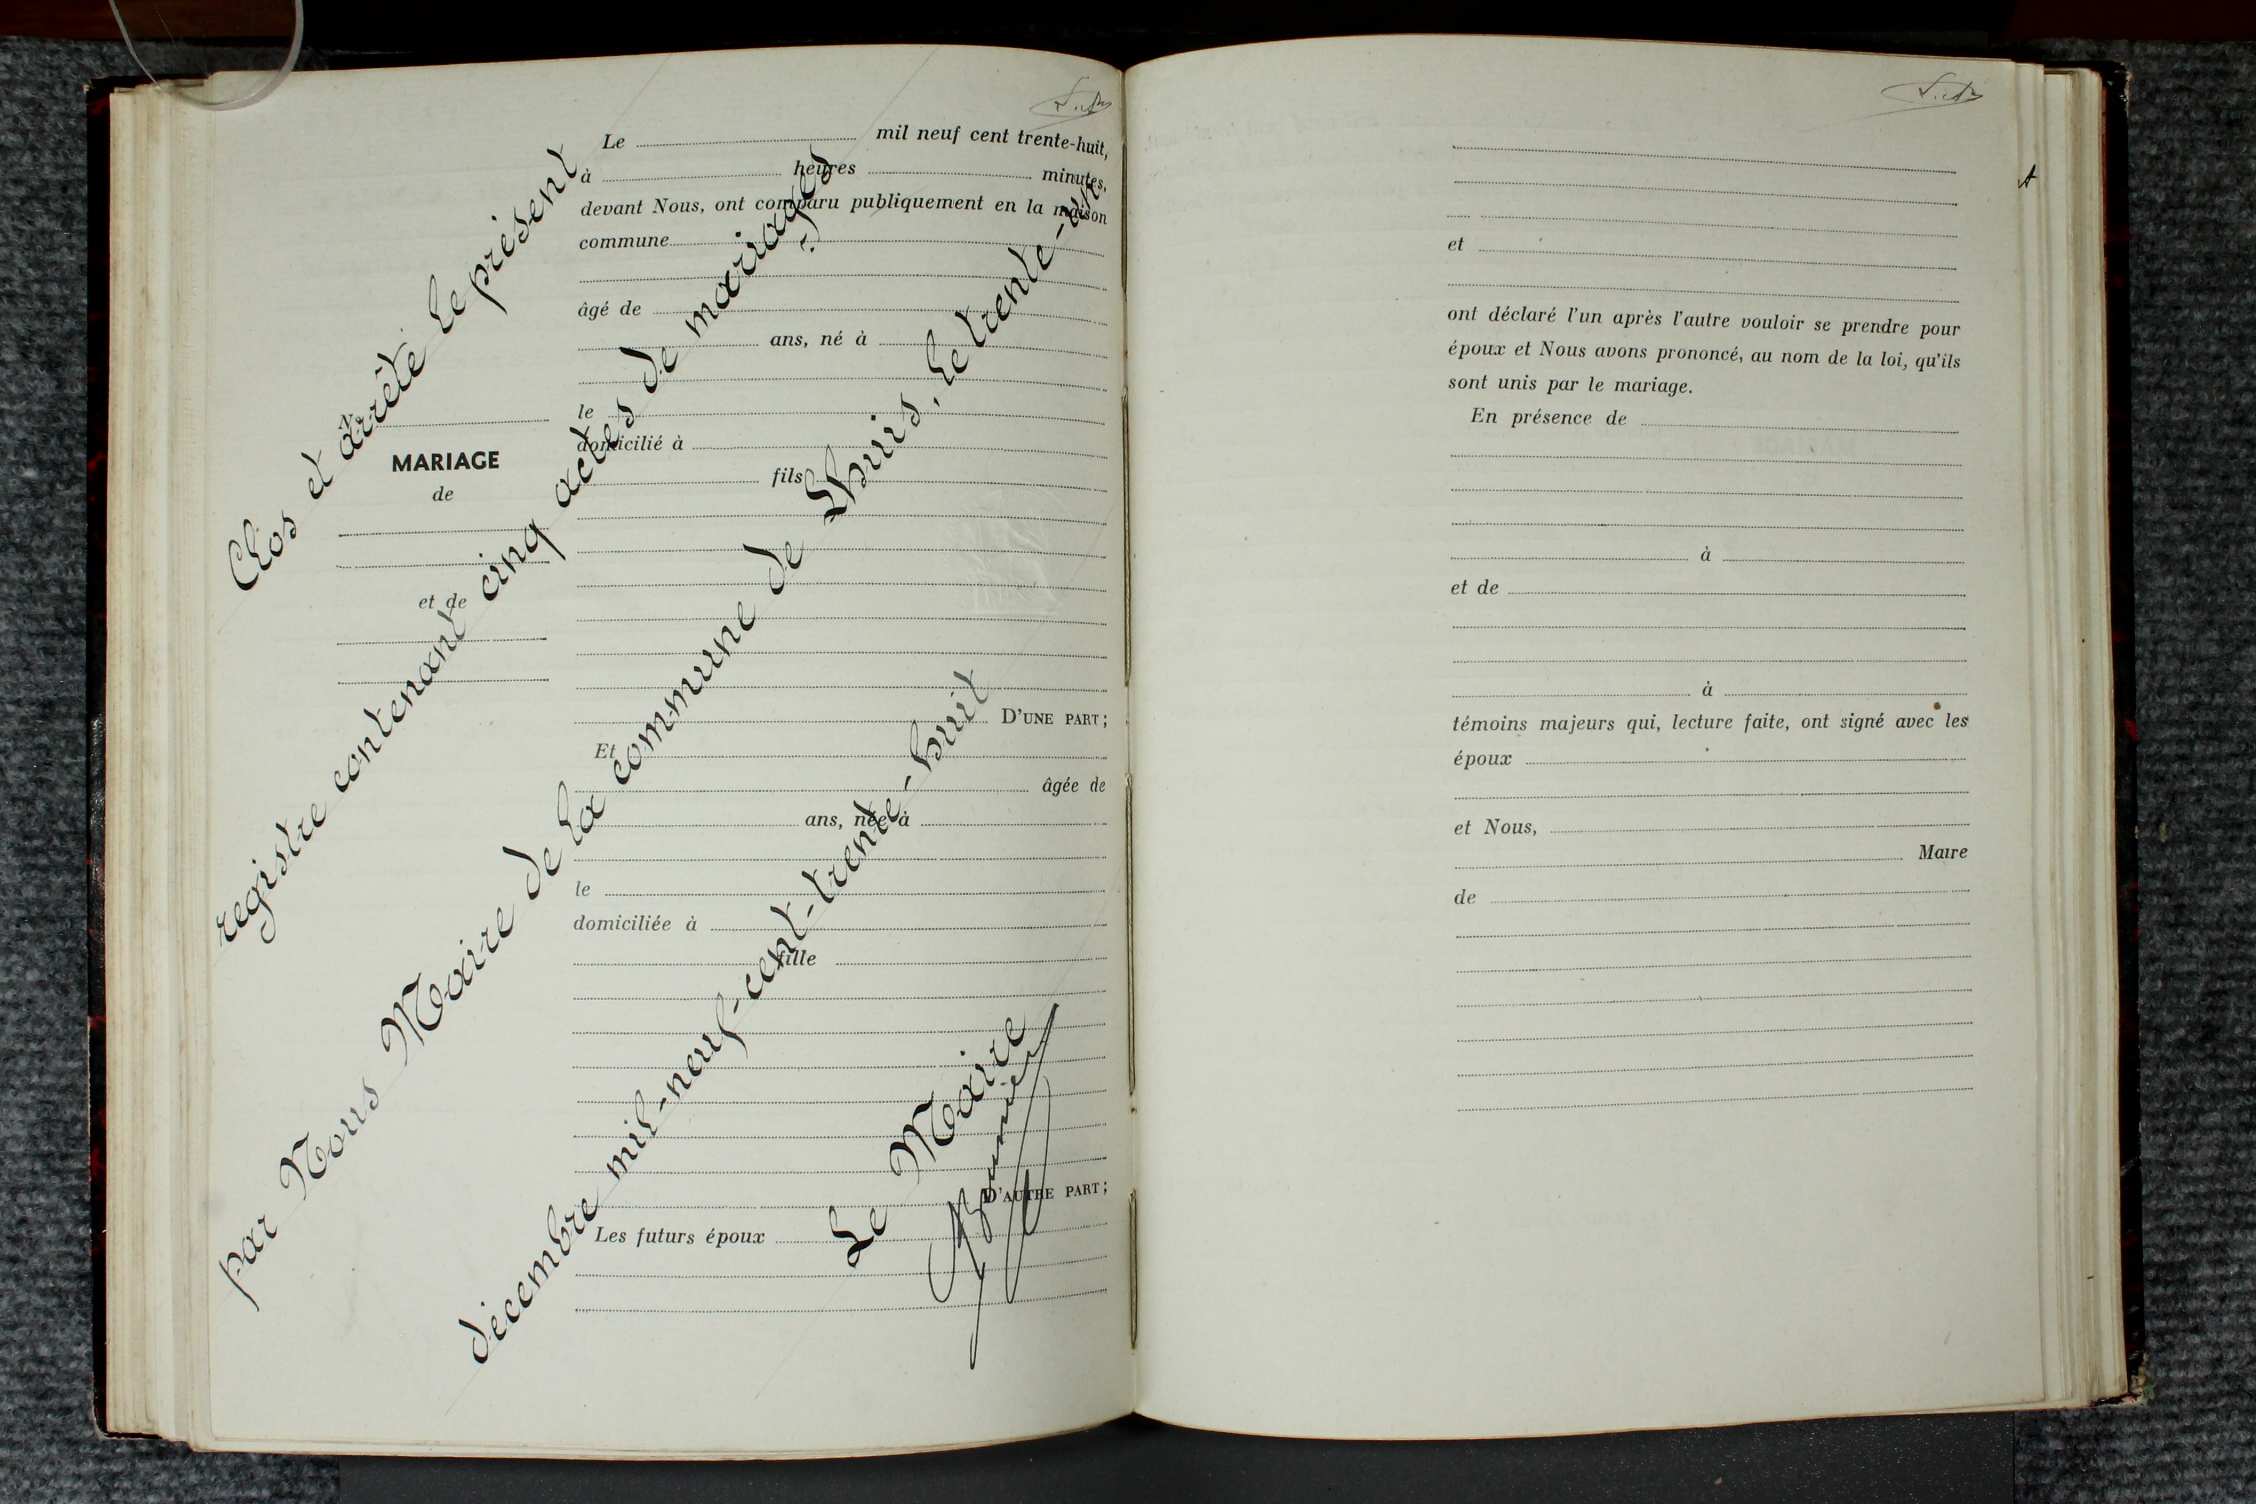 Le mil neuf cent trente-huit,
à heures minutes,
devant Nous, ont comparu publiquement en la maison
commune
âgé de
ans, né à
le
domicilié à
fils
D'UNE PART ;
Et
âgée de
ans, née à
le
domiciliée à
fille
D'AUTRE PART ;
Les futurs époux
N
MARIAGE
de
et de
Clos et arrêté le présent
registre contenant cinq actes de mariages
par Nous Maire de la commune de Lhuis, le trente-un
décembre mil-neuf-cent-trente-huit
Le Maire
et
ont déclaré l'un après l'autre vouloir se prendre pour
époux et Nous avons prononcé, au nom de la loi, qu'ils
sont unis par le mariage.
En présence de
à
et de
à
témoins majeurs qui, lecture faite, ont signé avec les
époux
et Nous,
Maire
de